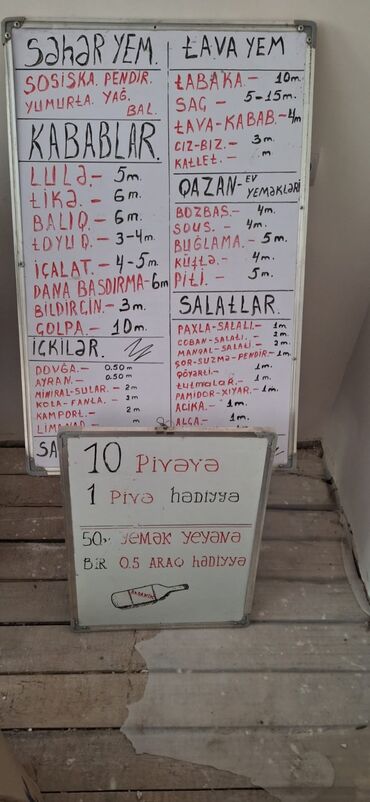 SəHəR YEM.
SOSİSKA. PENDİR.
YUMURTA. YAĞ.
BAL.
KABABLAR.
LULə.- 5m.
tiKə.- 6m.
BALIQ.- 6m.
tOYUQ.- 3-4m.
İÇALAT.- 4-5m.
DANA BASDIRMA-6m
BİLDİRÇİN.- 3m.
GOLPA.- 10m.
İÇKİLəR.
DOVĞA.- 0.50m
AYRAN.- 0.50m
MİNİRAL-SULAR.- 2m
KOLA-FANTA.- 3m
KAMPORT.- m
LİMANAD.- m
SA
tAVA YEM
tABAKA.- 10m.
SAC- 5-15m.
tAVA-KABAB.-4m
CIZ-BIZ.- 3m
KAtLEt.- m.
QAZAN-EV YEMəKLəRİ
BOZBAŞ.- 4m.
SOUS.- 4m.
BUĞLAMA.- 5m.
KÜFtə.- 4m.
PİtI.- 5m.
SALAtLAR.
PAXLA-SALALI.- 1m
ÇOBAN-SALAtI.- 2m
MANQAL-SALATI.- 2m
ŞOR-SUZMƏ-PENDİR.-1m
GÖYəRtİ.- 1m
tUtMALAR.- 1m
PAMİDOR-XIYAR.- 1m
ACIKA.- 1m.
ALÇA.- 1m.
10 PİVəYə
1 Pİvə həDİYYə
50m YEMəK YEYəNə
BİR 0.5 ARAQ həDİYYə